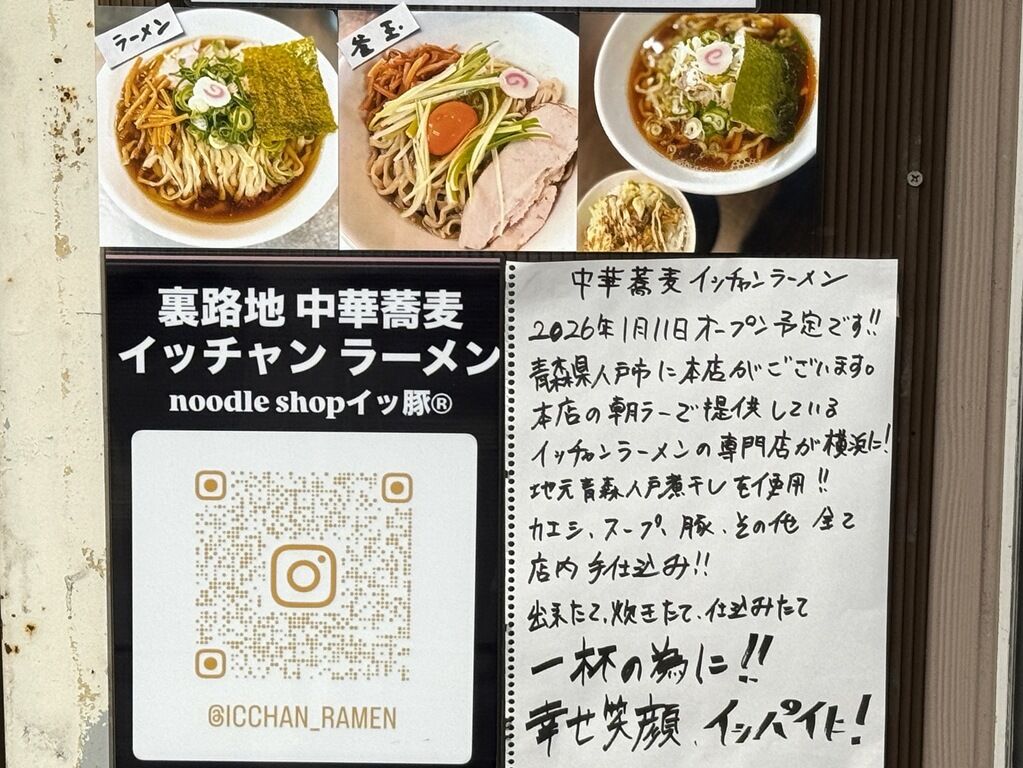 ラーメン
釜玉.
裏路地 中華蕎麦
イッチャン ラーメン
noodle shopイッ豚®
@ICCHAN_RAMEN
中華蕎麦 イッチャンラーメン
2026年1月11日オープン予定です!!
青森県八戸市に本店がございます。
本店の朝ラーで提供している
イッチャンラーメンの専門店が横浜に!
地元青森八戸煮干しを使用!!
カエシ、スープ、豚、その他 全て
店内 手仕込み!!
出来たて、炊きたて、仕込みたて
一杯の為に!!
幸せ笑顔、イッパイに!